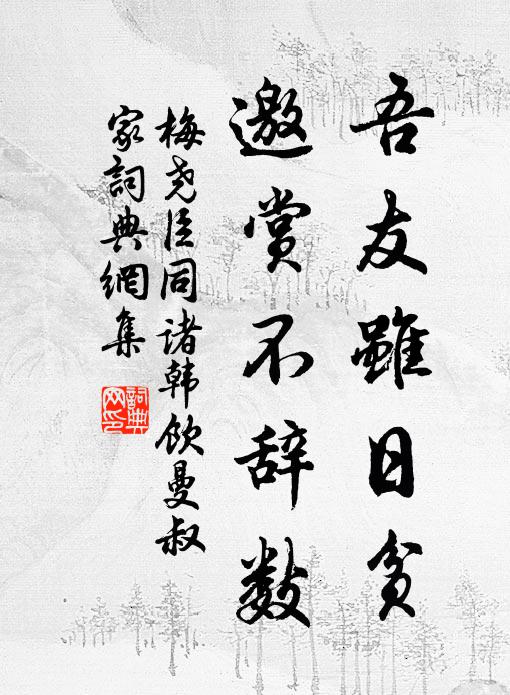 吾友雖日貧
邀赏不辞數
梅尧臣同诸韩饮曼叔
家詞典網集
詞典
网印